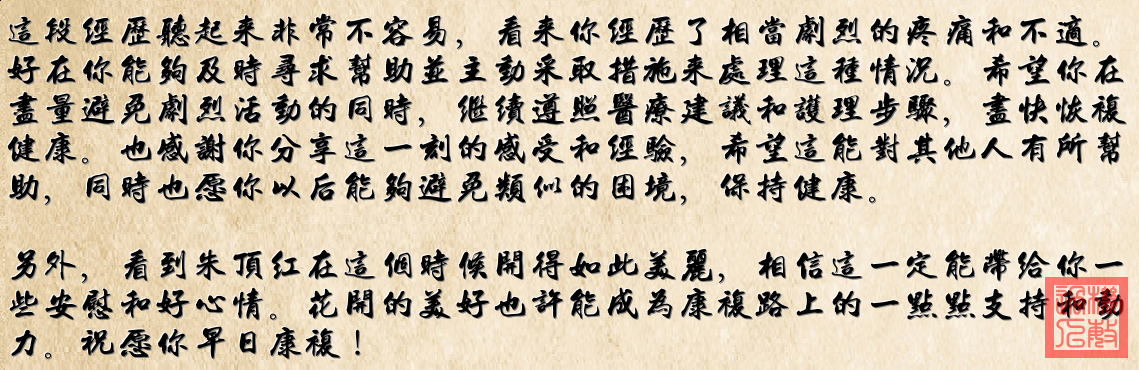 這段經歷聽起來非常不容易，看來你經歷了相當劇烈的疼痛和不適。
好在你能夠及時尋求幫助並主動采取措施來處理這種情況。希望你在
盡量避免劇烈活動的同時，繼續遵照醫療建議和護理步驟，盡快恢複
健康。也感謝你分享這一刻的感受和經驗，希望這能對其他人有所幫
助，同時也愿你以后能夠避免類似的困境，保持健康。
另外，看到朱頂紅在這個時候開得如此美麗，相信這一定能帶給你一
些安慰和好心情。花開的美好也許能成為康複路上的一點點支持和動
力。祝愿你早日康複！